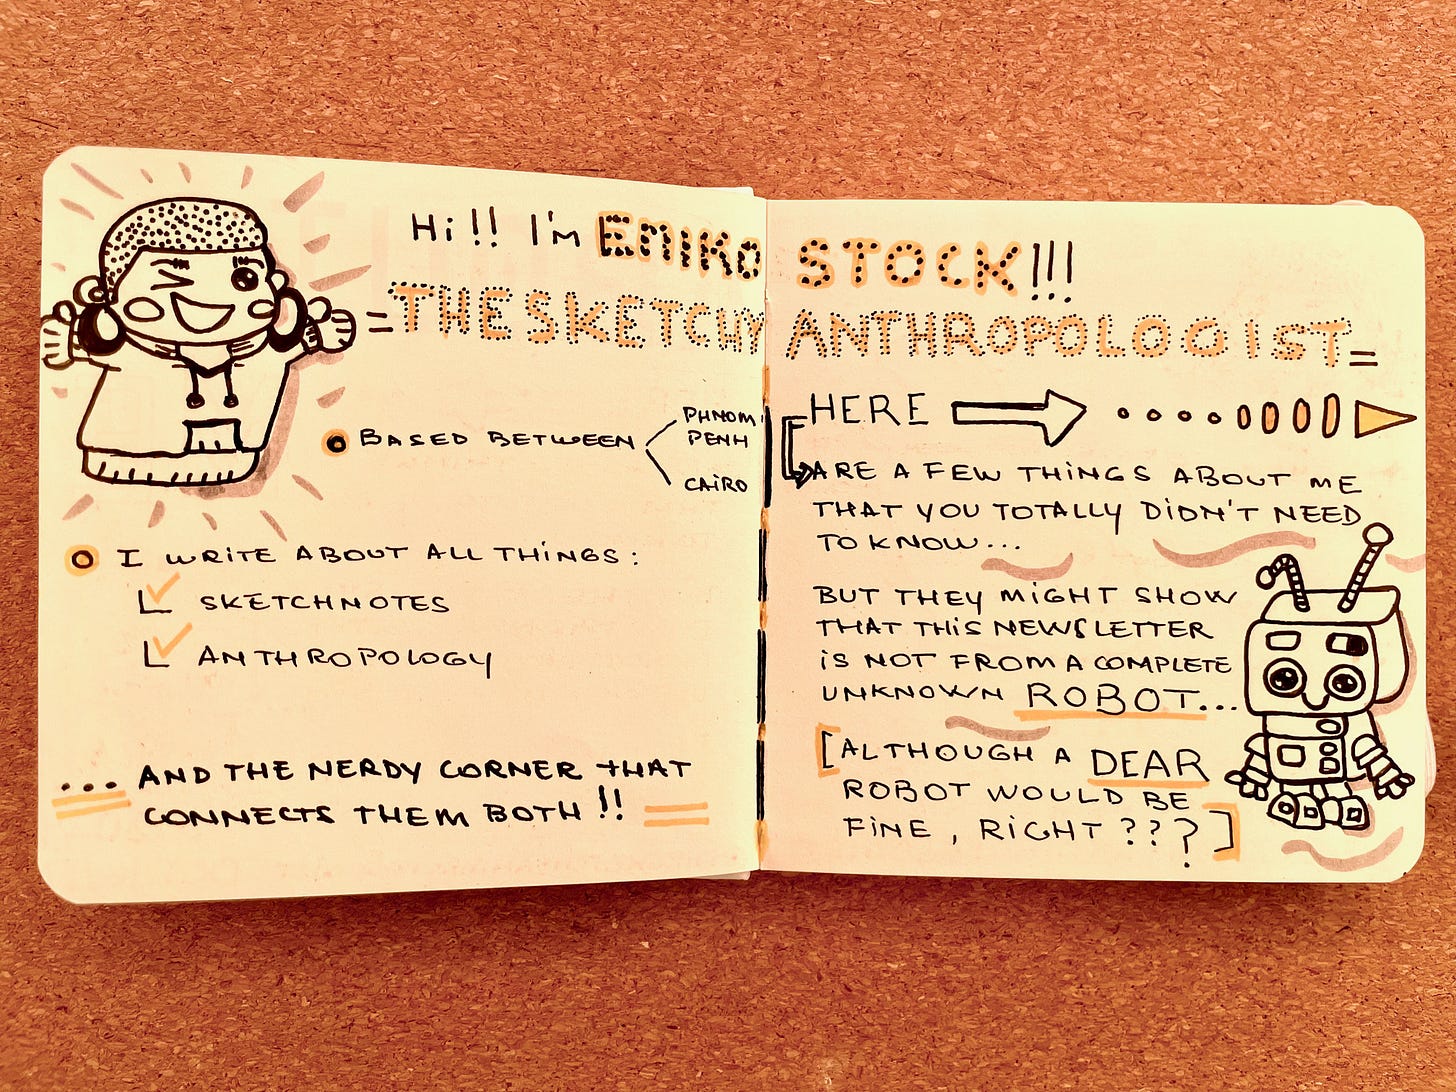 Hi!! I'm EMIKO STOCK!!!
= THE SKETCHY ANTHROPOLOGIST =
BASED BETWEEN
PHNOM
PENH
CAIRO
I WRITE ABOUT ALL THINGS:
SKETCHNOTES
ANTHROPOLOGY
... AND THE NERDY CORNER THAT
CONNECTS THEM BOTH!!
HERE
ARE A FEW THINGS ABOUT ME
THAT YOU TOTALLY DIDN'T NEED
TO KNOW...
BUT THEY MIGHT SHOW
THAT THIS NEWSLETTER
IS NOT FROM A COMPLETE
UNKNOWN ROBOT...
[ALTHOUGH A DEAR
ROBOT WOULD BE
FINE, RIGHT???]